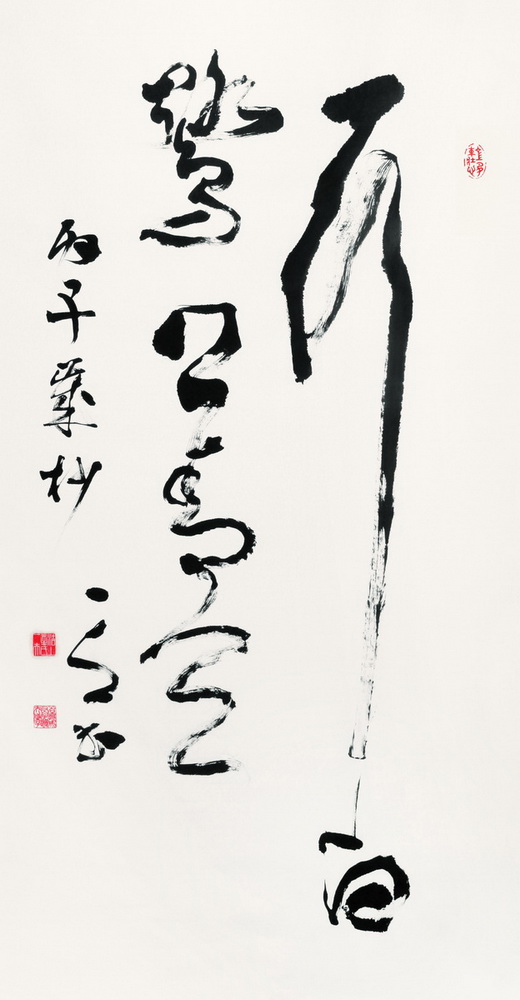 一行白
鷺上青天
丙子歲杪